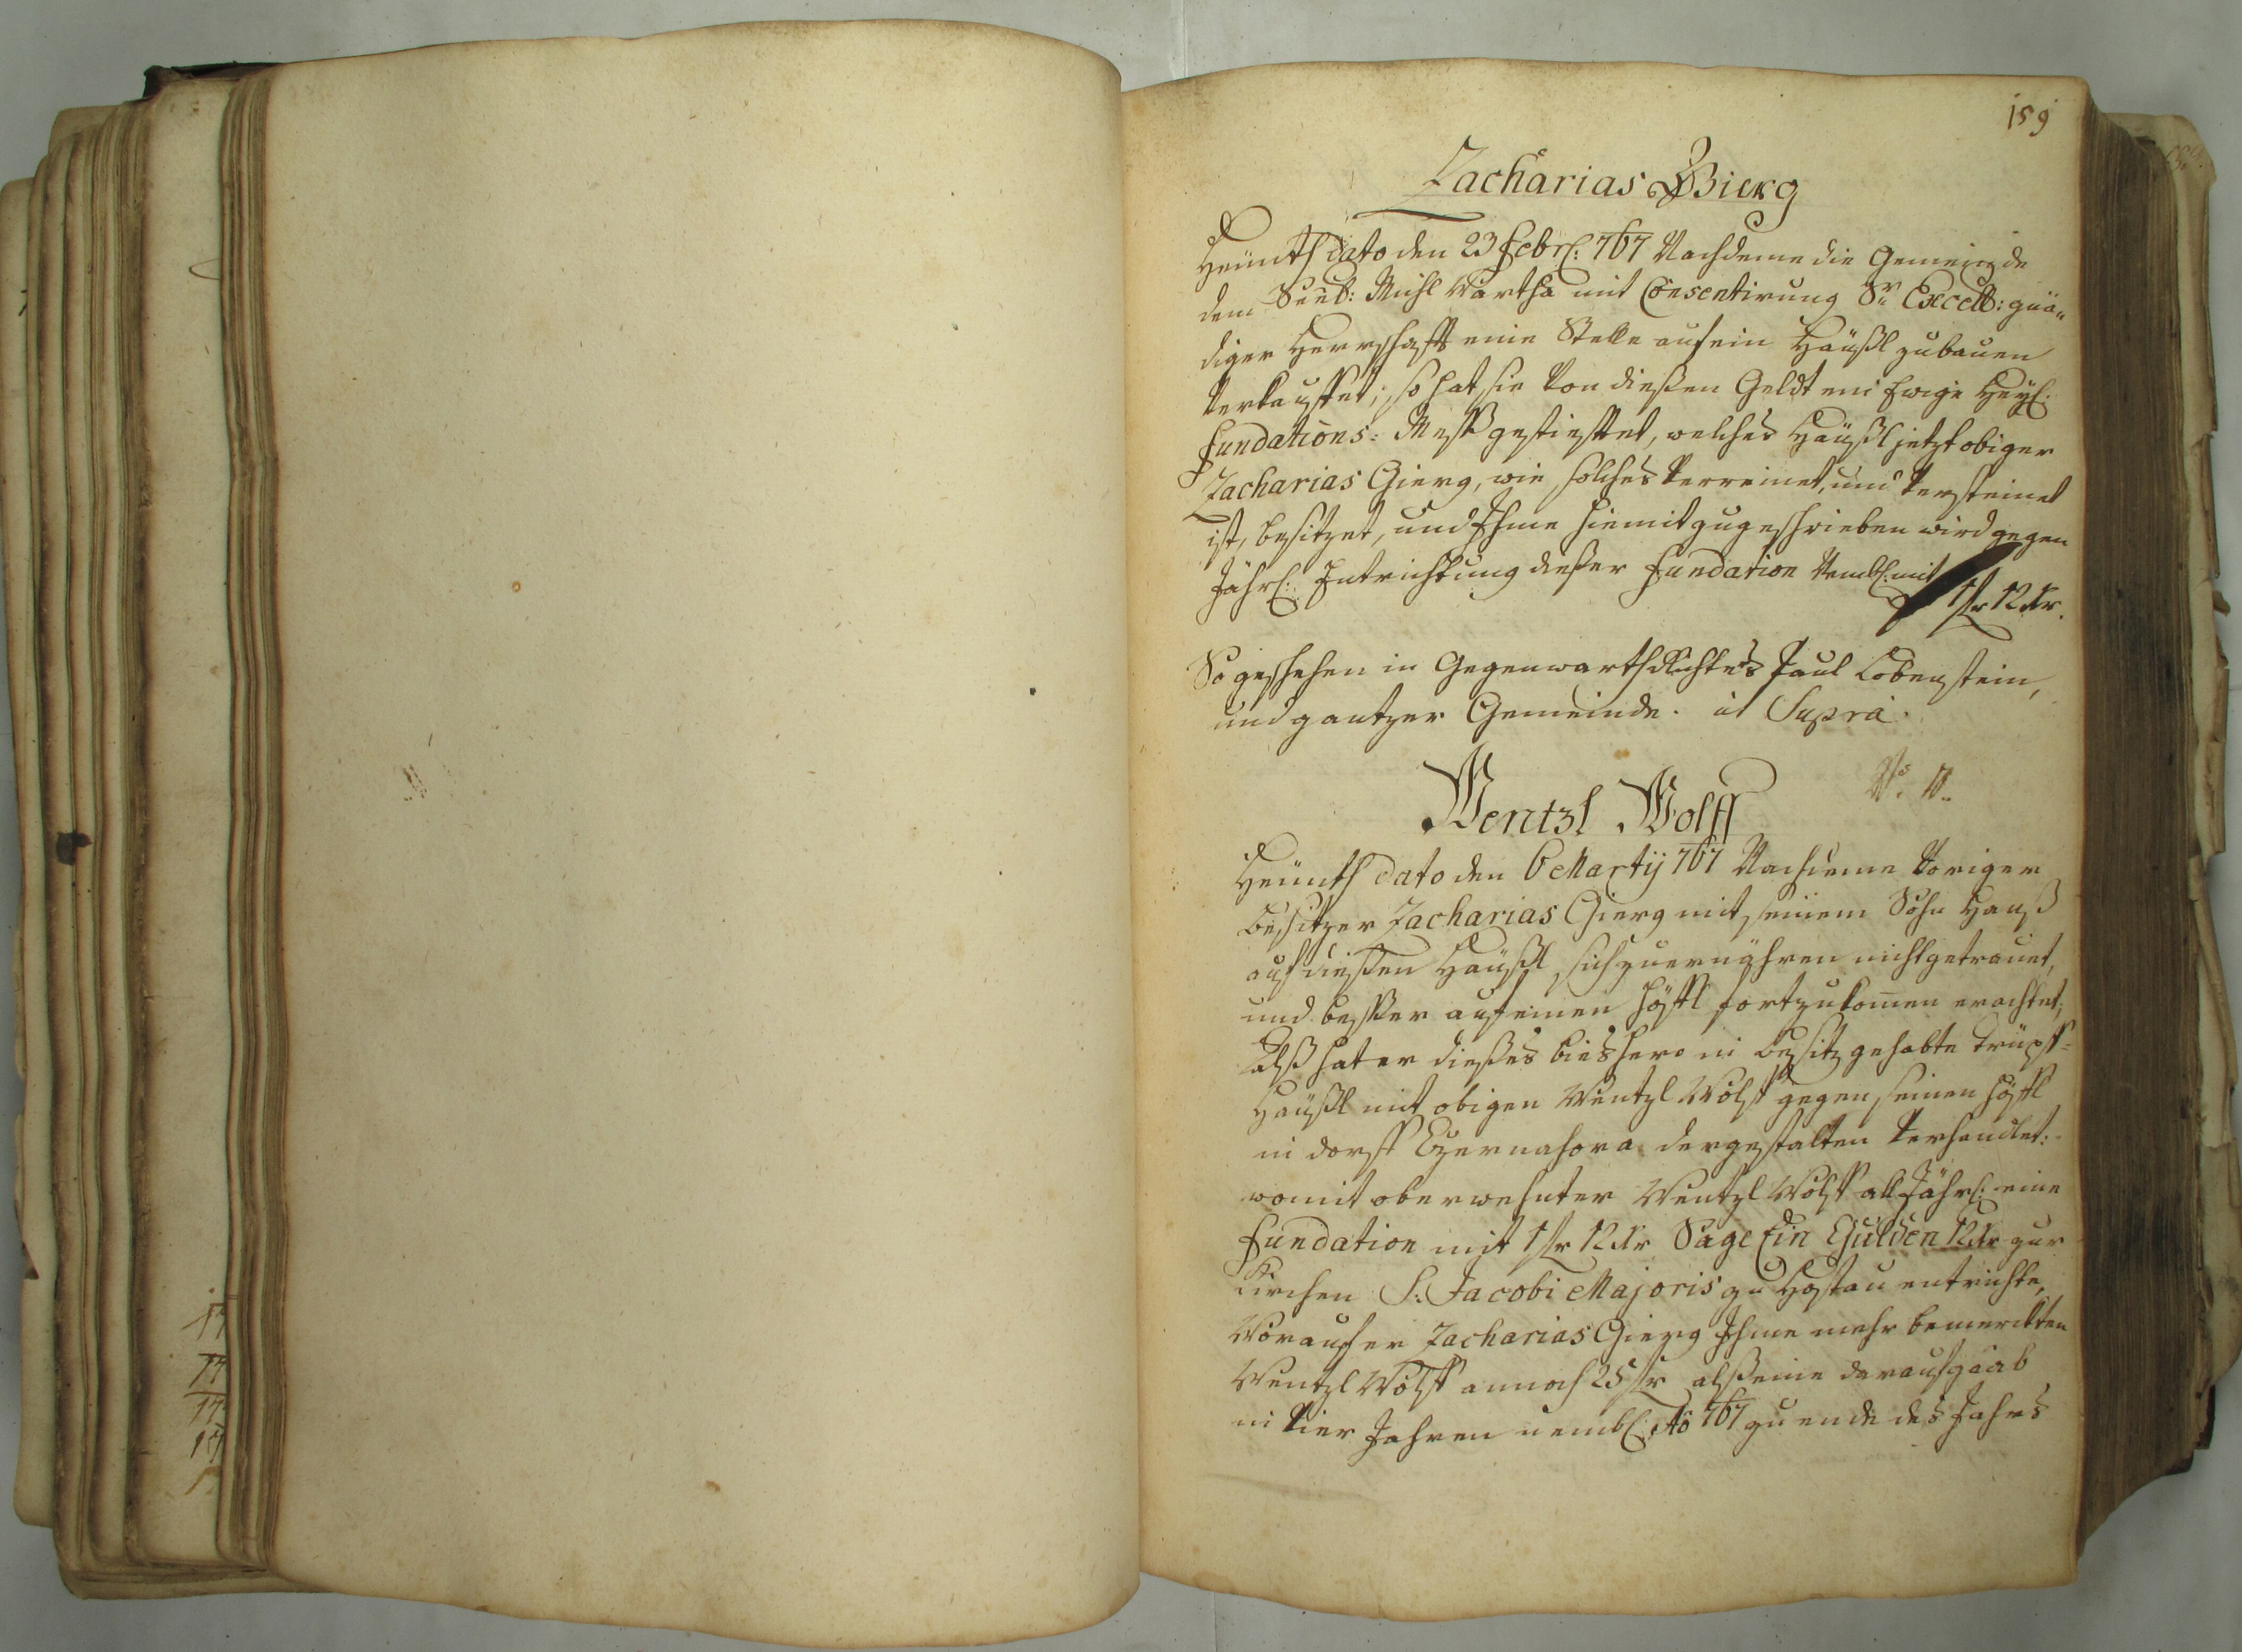 159
Zacharias Gierg
Heünth dato den 23 Febrl: 767 Nachdeme die Gemeinde
dem Mihl Wartha mit Consentirung Sr Excell: gnä„
diger Herrschafft eine Stelle auf ein Häußl zubauen
verkauffet; so hat sie von dießen Geldt eni Ewige Heyl:
Fundations: Meß gestiefftet, welches Häußl jetzt obiger
Zacharias Gierg, wie solches verreinet, und versteinet
ist, besitzet, und Ihme hiemit zugeschrieben wird gegen
Jährl: Entrichtung dießer Fundation Nembl: mit
1 fr 12 Kr.
So geschehen in Gegenwarth Richters Paul Lobenstein,
und gantzer Gemeinde. ut Supra.
No. 11.
Wentzl Wolff
Heünth dato den 6 Martij 767 Nachdeme Voriger
besitzer Zacharias Gierg mit seinem Sohn Hanß
auf dießen Häußl, sich zuernähren nicht getrauet,
und beßer auf einen Höffl fortzukomen erachtet;
Alß hat er dießes bieshero in besitz gehabte Trüpff=
Häußl mit obigen Wentzl Wolff gegen seinen Höffl
in dorff Czernahora dergestalten verhandlet:
womit oberwehnter Wentzl Wolff all Jährl: eine
Fundation mit 1 fr 12 Kr Sage Ein Gulden 12 Kr zur
Kirchen S: Jacobi Majoris zu Hostau entrichte,
Worauf er Zacharias Gierg Ihme mehr bemerckten
Wentzl Wolff annoch 25 fr alß eine daraufgaab
in vier Jahren nembl: Ao 767 zu ende des Jahrs